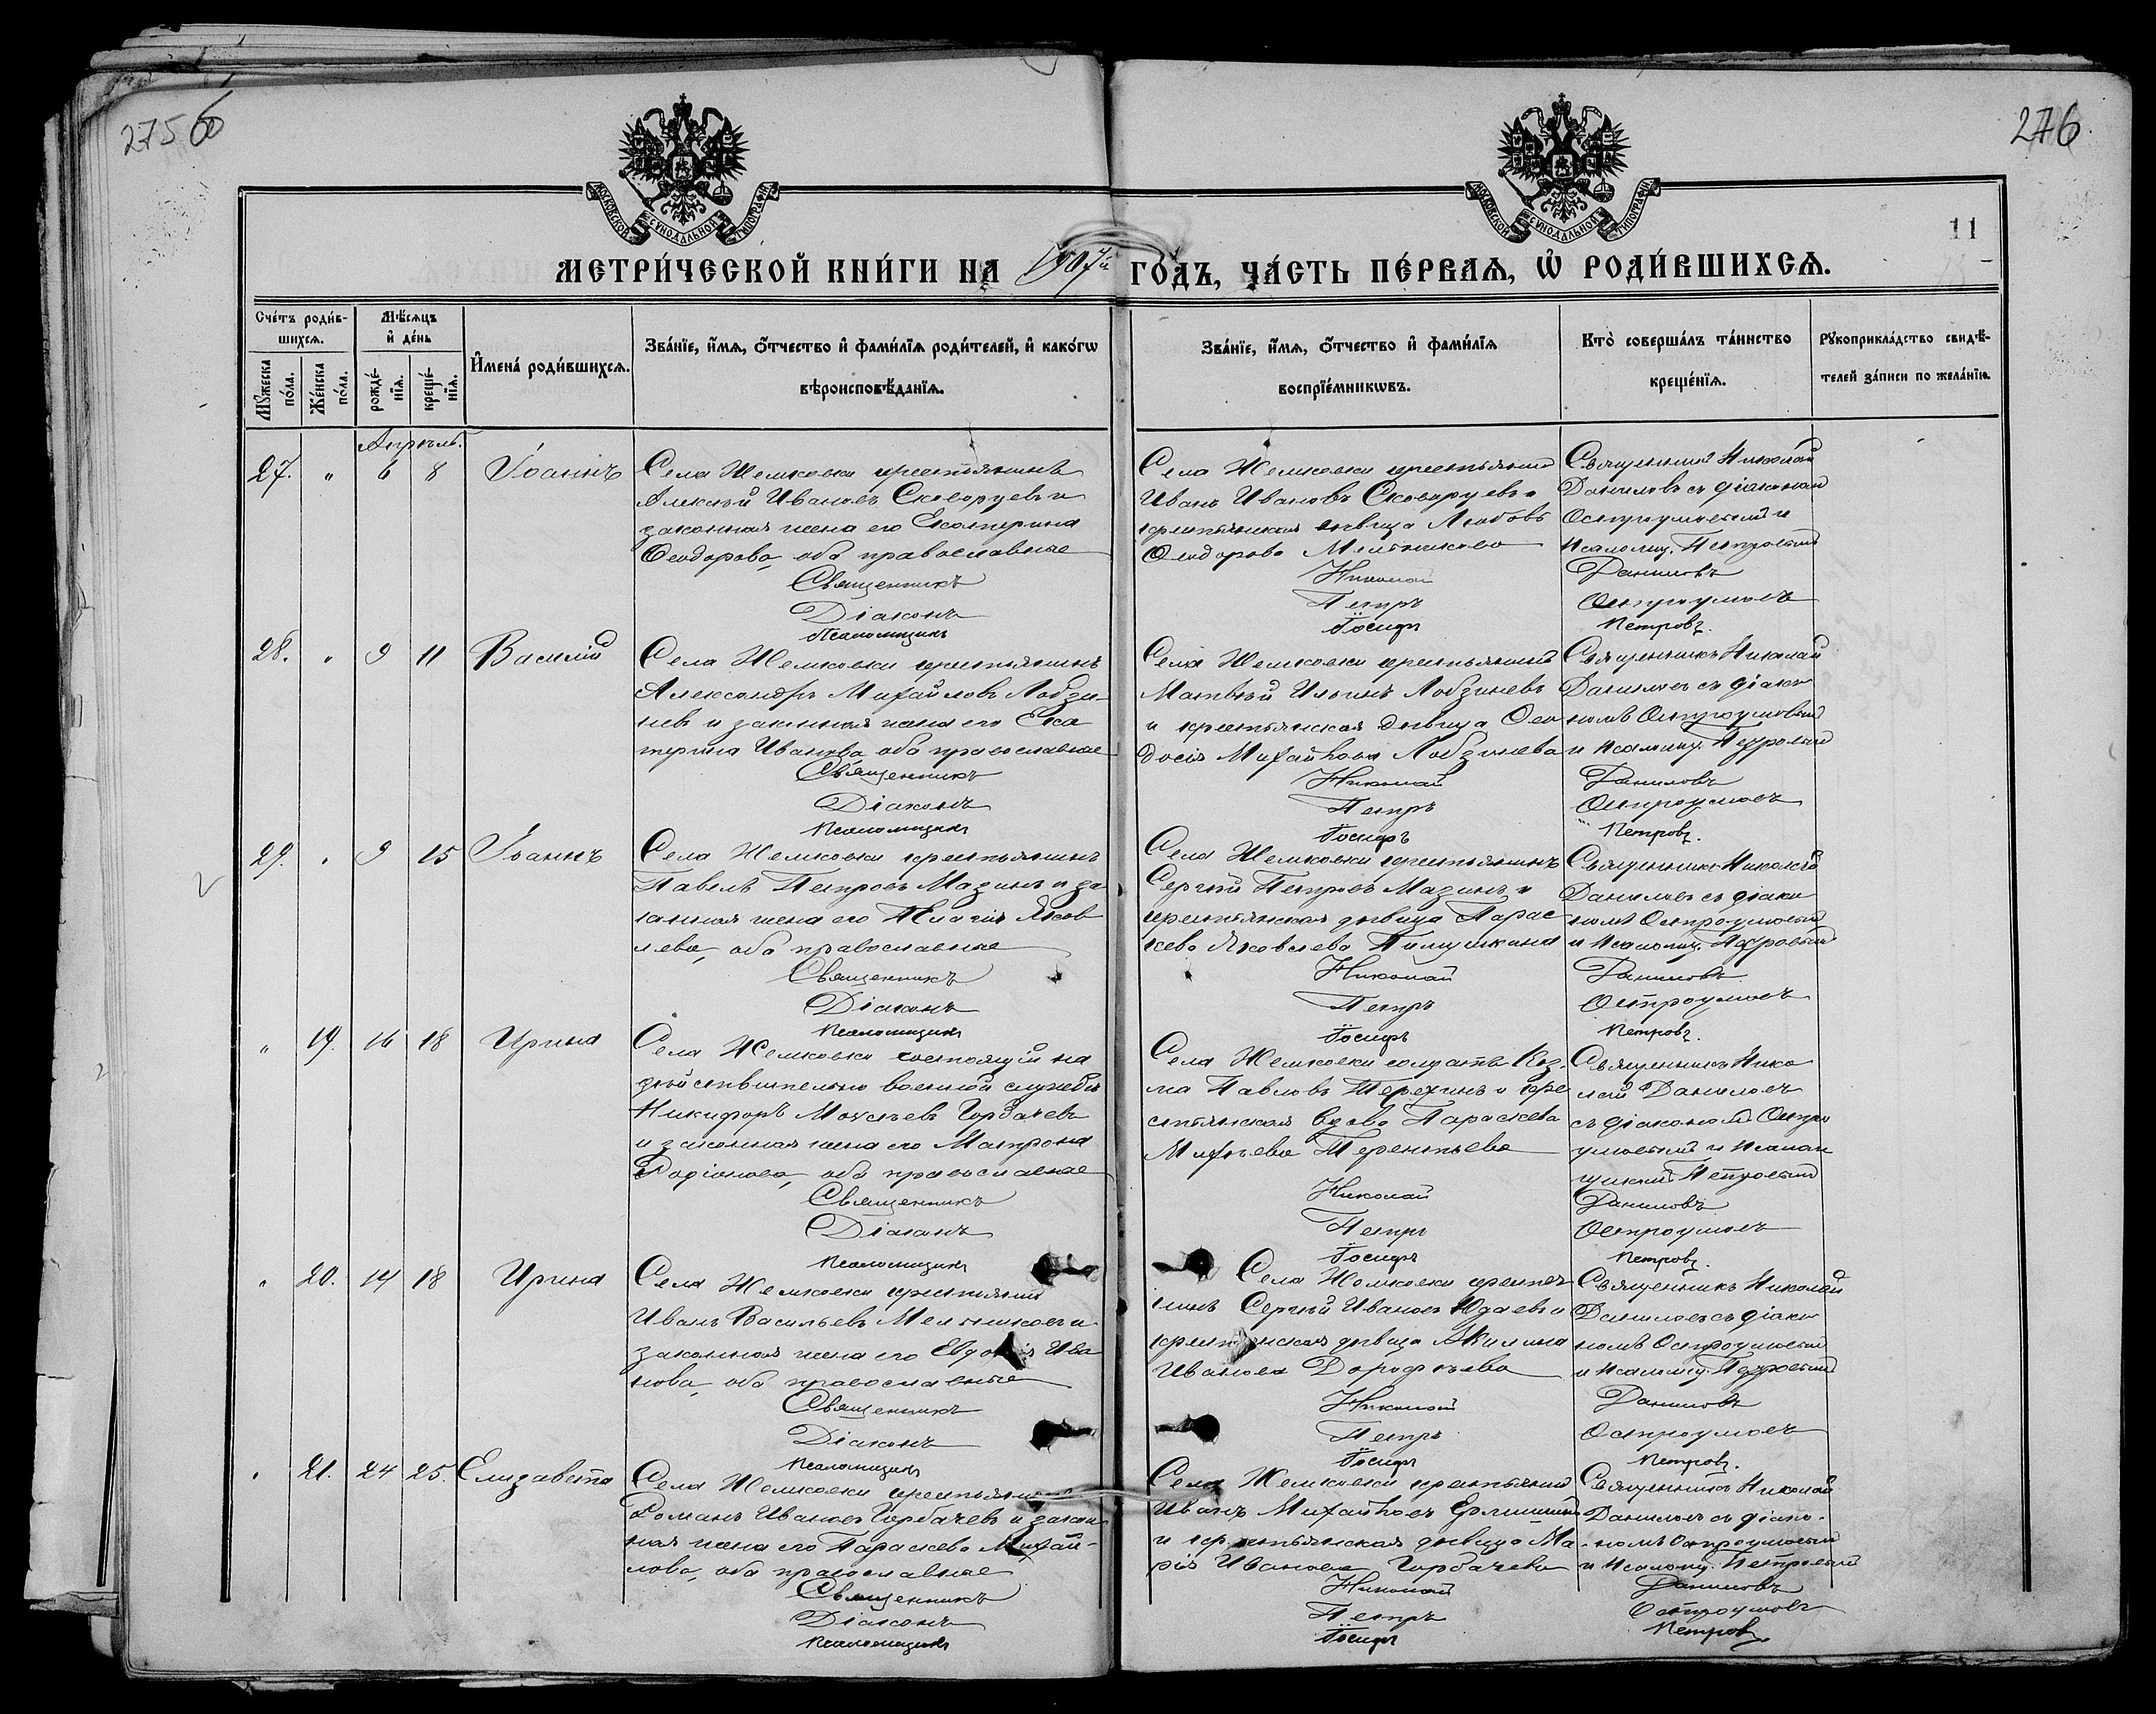 275 об
276
11
МОСКОВСКОЙ СѴНОДАЛЬНОЙ ТИПОГРАФІИ
МОСКОВСКОЙ СѴНОДАЛЬНОЙ ТИПОГРАФІИ
МЕТРИ́ЧЕСКОЙ КНИ́ГИ НА 1907й ГОДЪ, ЧА́СТЬ ПЕ́РВАЯ, Ѽ РОДИ́ВШИХСЯ.
Сче́тъ роди́в-
шихся.
Мѣ́сяцъ
и҆ де́нь
Мꙋ́жеска по́ла.
Же́нска по́ла.
рожде́-нїя.
креще́-нїя.
И҆мена̀ роди́вшихся.
Зва́нїе, и҆́мя, ѻ҆́тчество и҆ фами́лїя роди́телей, и҆ како́гѡ
вѣроисповѣ́данїя.
Зва́нїе, и҆́мя, ѻ҆́тчество и҆ фами́лїя
воспрїе́мникѡвъ.
Кто̀ соверша́лъ та́инство
креще́нїя.
Рꙋкоприкла́дство свидѣ́-
телей за́писи по жела́нїю.
Апрѣль.
27. " 6 8 Іоаннъ
Села Жемковки крестьянинъ
Алексѣй Ивановъ Сковоруевъ и
законная жена его Екатерина
Ѳеодорова, оба православные
Священникъ
Діаконъ
Псаломщикъ
Села Жемковки крестьянинъ
Иванъ Ивановъ Сковоруевъ и
крестьянская дѣвица Любовь
Ѳеодорова Мельникова
Николай
Петръ
Іосифъ
Священникъ Николай
Даниловъ съ діакономъ
Остроумовымъ и
псаломщ. Петровымъ
Даниловъ
Остроумовъ
Петровъ.
28. " 9 11 Василій
Села Жемковки крестьянинъ
Александръ Михайловъ Лобзи-
невъ и законная жена его Ека
терина Иванова, оба православные
Священникъ
Діаконъ
Псаломщикъ
Села Жемковки крестьянинъ
Матвѣй Ильинъ Лобзиневъ
и крестьянская дѣвица Ѳео
досія Михайлова Лобзинева
Николай
Петръ
Іосифъ
Священникъ Николай
Даниловъ съ діако
номъ Остроумовымъ
и псаломщ. Петровымъ
Даниловъ
Остроумовъ
Петровъ.
29. " 9 15 Іоаннъ
Села Жемковки крестьянинъ
Павелъ Петровъ Мазинъ и за
конная жена его Пелагія Яков
лева, оба православные
Священникъ
Діаконъ
Псаломщикъ
Села Жемковки крестьянинъ
Сергѣй Петровъ Мазинъ и
крестьянская дѣвица Парас
кева Яковлева
Николай
Петръ
Іосифъ
Священникъ Николай
Даниловъ съ діако
номъ Остроумовымъ
и псаломщ. Петровымъ
Даниловъ
Остроумовъ
Петровъ.
" 19. 16 18 Ирина
Села Жемковки состоящій на
дѣйствительной военной службѣ
Никифоръ Моисѣевъ Горбачевъ
и законная жена его Матрона
Родіонова, оба православные
Священникъ
Діаконъ
Псаломщикъ
Села Жемковки солдатъ Коз-
ма Павловъ Терехинъ и кре
стьянская вдова Параскева
Михѣева Терентьева
Николай
Петръ
Іосифъ
Священникъ Нико
лай Даниловъ
съ діакономъ Остро
умовымъ и псалом
щикомъ Петровымъ
Даниловъ
Остроумовъ
Петровъ.
" 20. 14 18 Ирина
Села Жемковки крестьянинъ
Иванъ Васильевъ Мельниковъ и
законная жена его Евдокія Ива
нова, оба православные
Священникъ
Діаконъ
Псаломщикъ
Села Жемковки крестья
нинъ Сергѣй Ивановъ Юдаевъ и
крестьянская дѣвица Акилина
Иванова Дорофѣева
Николай
Петръ
Іосифъ
Священникъ Николай
Даниловъ съ діако
номъ Остроумовымъ
и псаломщ. Петровымъ
Даниловъ
Остроумовъ
Петровъ.
" 21. 24 25. Елизавета
Села Жемковки крестьянинъ
Романъ Ивановъ Горбачевъ и закон
ная жена его Параскева Михай-
лова, оба православные
Священникъ
Діаконъ
Псаломщикъ
Села Жемковки крестьянинъ
Иванъ Михайловъ
и крестьянская дѣвица Ма-
рія Иванова Горбачева
Николай
Петръ
Іосифъ
Священникъ Николай
Даниловъ съ діако-
номъ Остроумовымъ
и псаломщ. Петровымъ
Даниловъ
Остроумовъ
Петровъ.